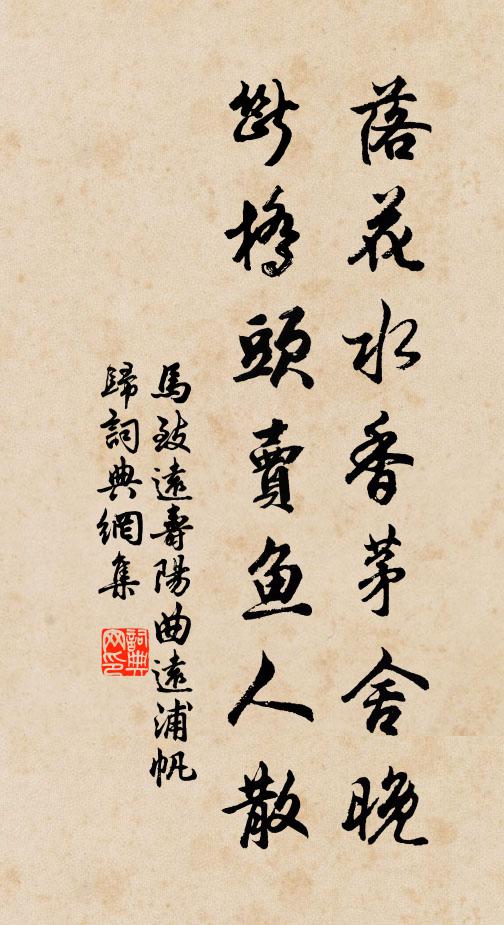 落花水香茅舍晚
斷橋頭賣鱼人散
馬致遠壽陽曲遠浦帆
歸詞典網集
詞典网印